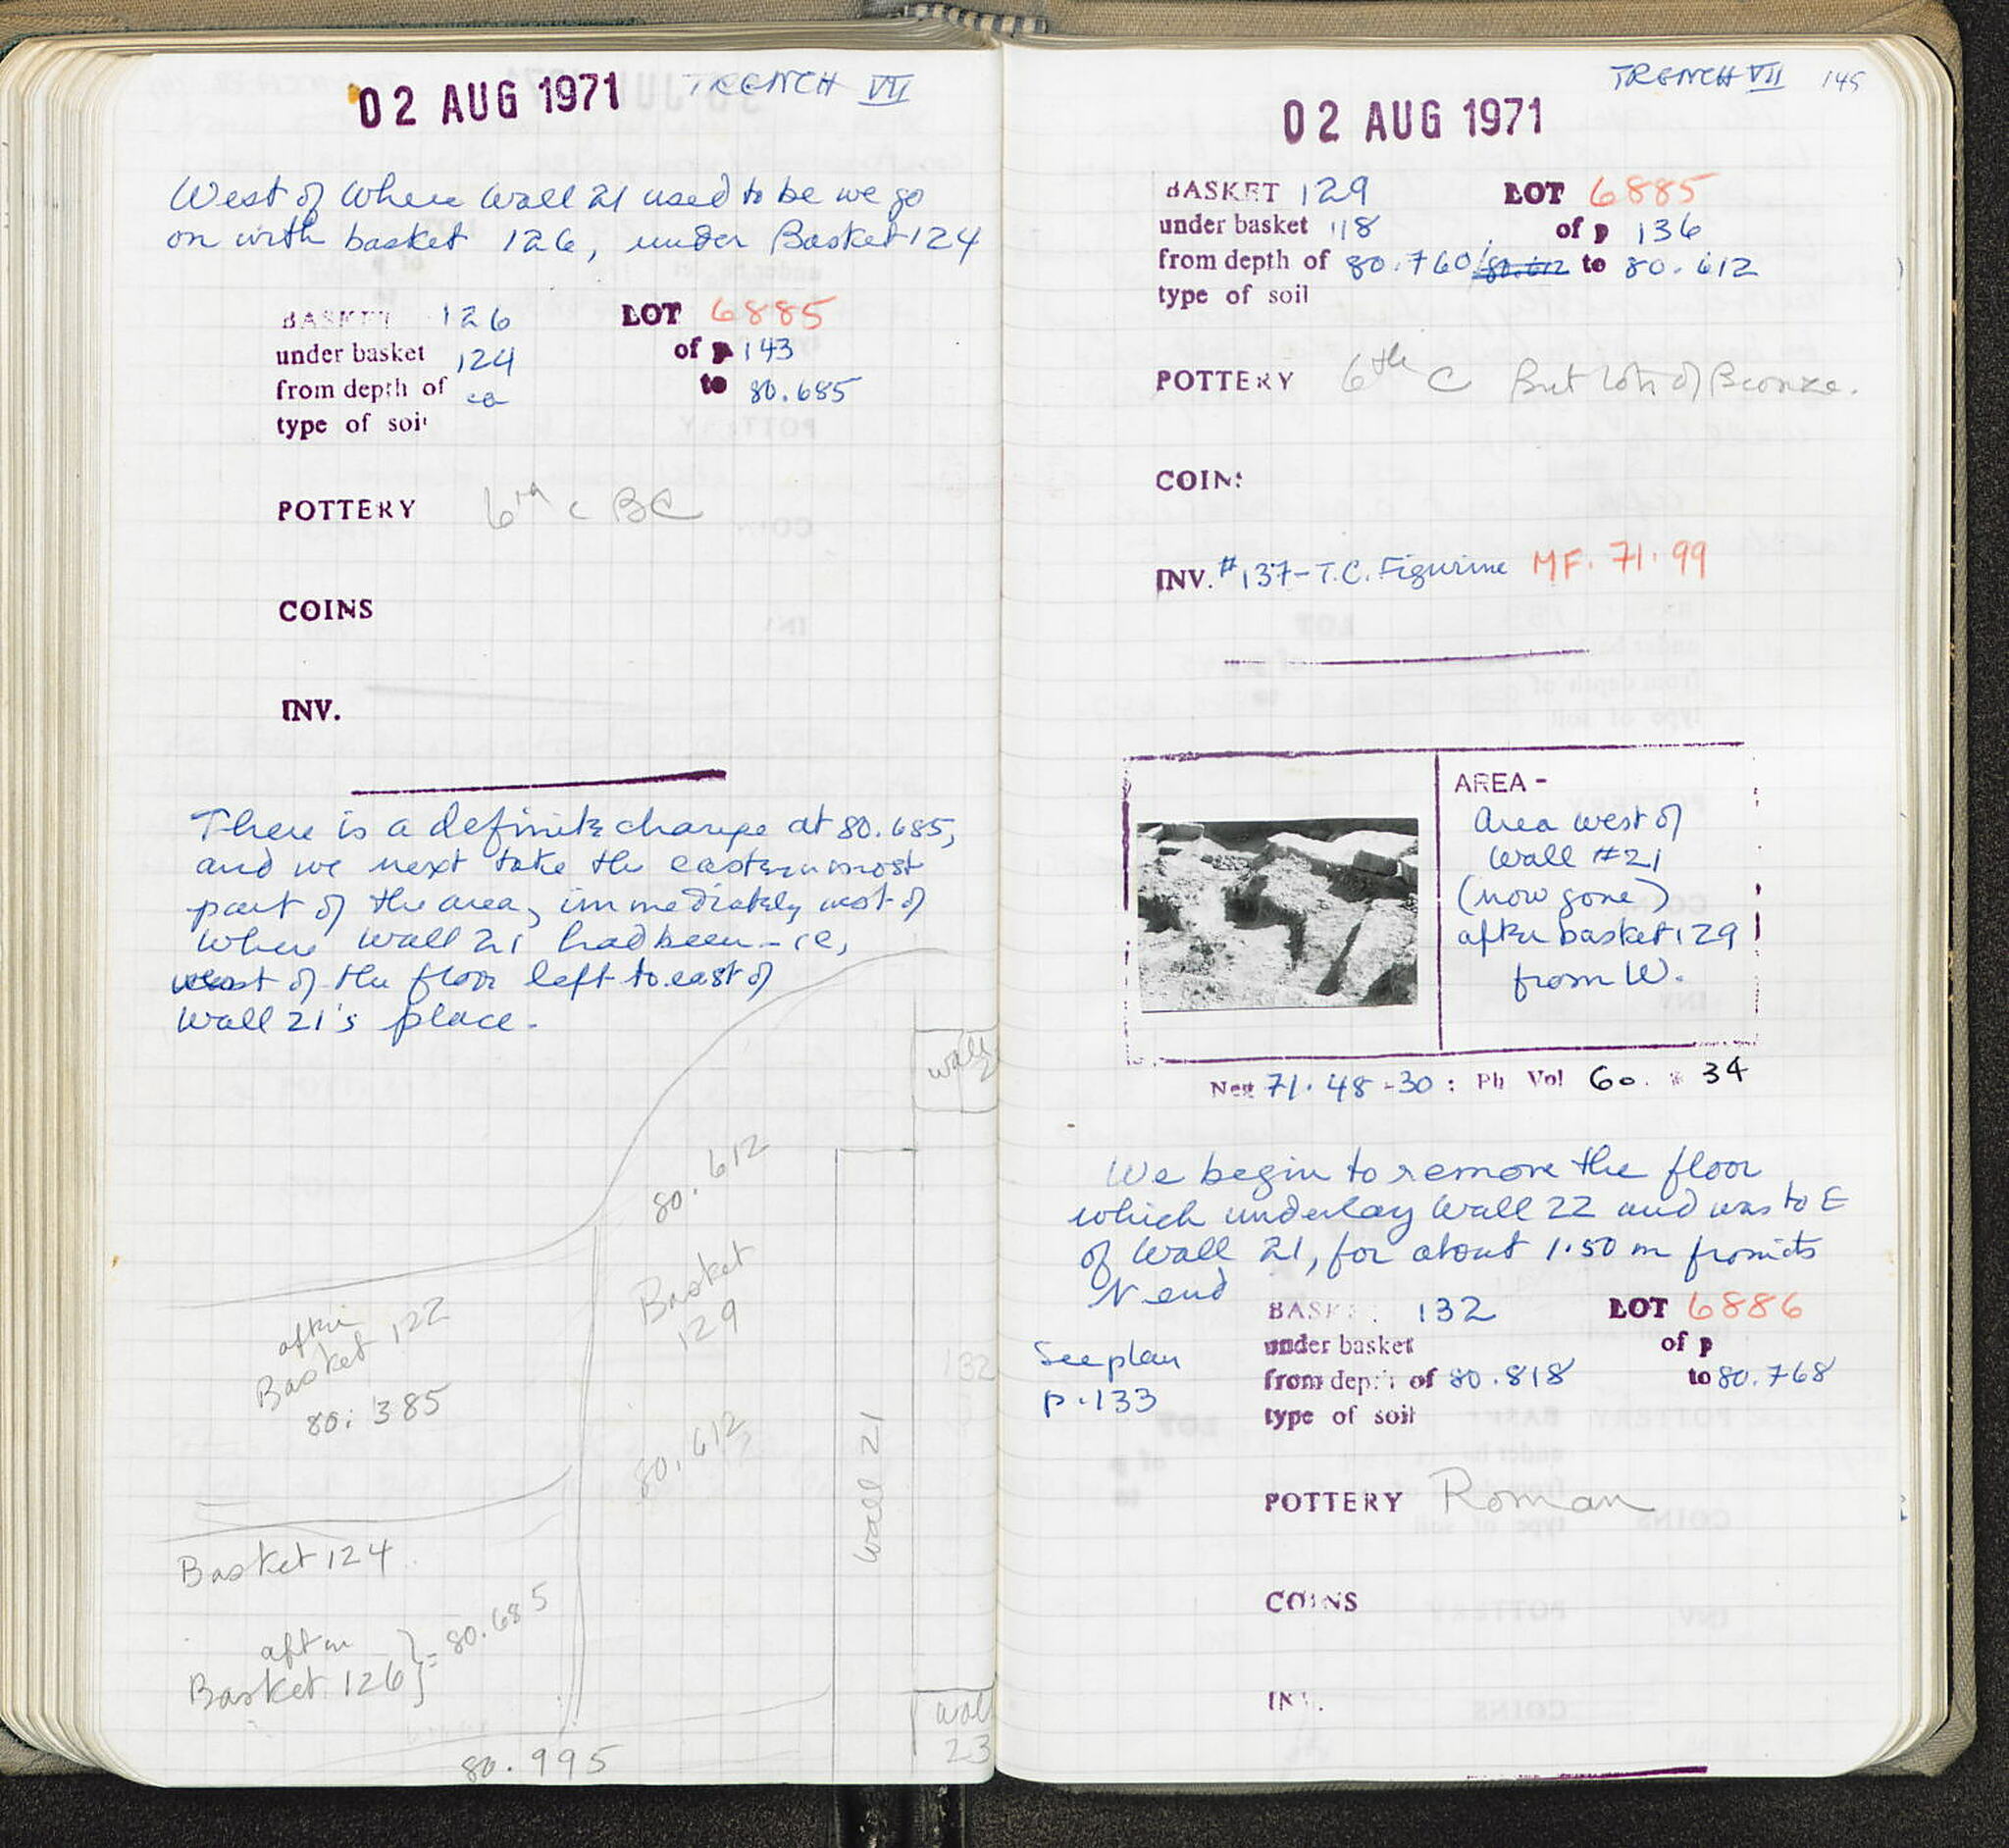 02 AUG 1971 TRENCH VII
West of where Wall 21 used to be we go
on with basket 126, under Basket 124
BASKET 126 LOT 6885
under basket 124 of p 143
from depth of ca to 80.685
type of soil
POTTERY 6th c BC
COINS
INV.
There is a definite change at 80.685,
and we next take the easternmost
part of the area, immediately west of
where Wall 21 had been - ie,
west of the floor left to east of
Wall 21's place.
wall
80.612
Basket
129
after
Basket 122
80.385
132
80.612
Wall 21
Basket 124
after
Basket 126 } = 80.685
wall
23
80.995
TRENCH VII 145
02 AUG 1971
BASKET 129 LOT 6885
under basket 118 of p 136
from depth of 80.760/80.612 to 80.612
type of soil
POTTERY 6th C But lots of Bronze.
COINS
INV. #137 - T.C. Figurine MF. 71.99
AREA -
Area west of
Wall #21
(now gone)
after basket 129
from W.
Neg 71.48-30 : Ph Vol 60. 34
We begin to remove the floor
which underlay Wall 22 and was to E
of Wall 21, for about 1.50 m from its
N end
BASKET 132 LOT 6886
under basket of p
See plan
p.133
from depth of 80.818 to 80.768
type of soil
POTTERY Roman
COINS
INV.